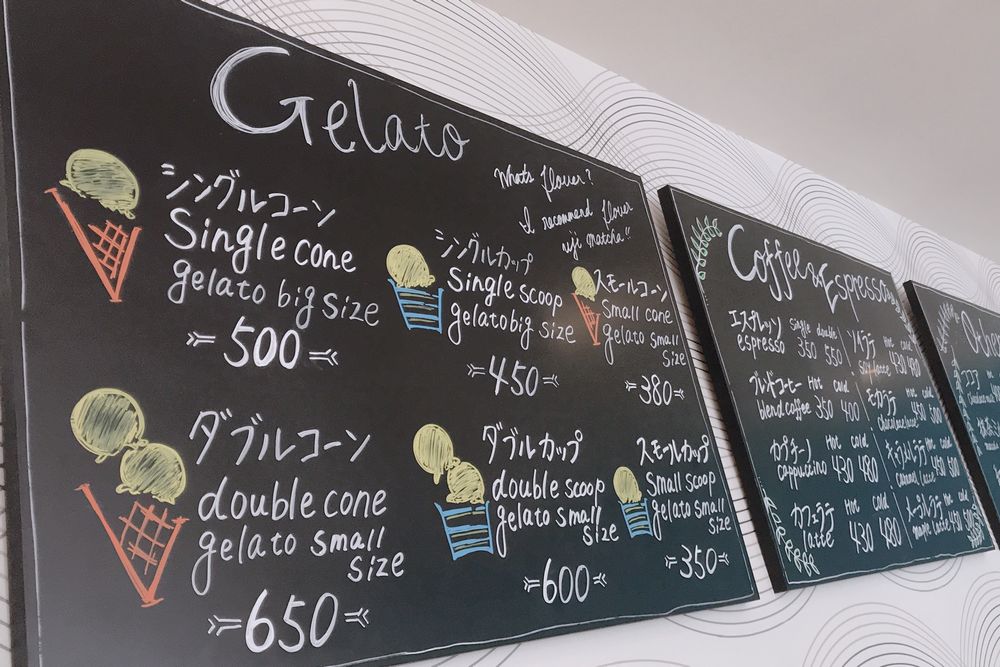 Gelato
What's flover?
I recommend flover
uji matcha!!
シングルコーン
Single cone
gelato big size
500
シングルカップ
Single scoop
gelato big size
450
スモールコーン
Small cone
gelato small
size
380
ダブルコーン
double cone
gelato small
size
650
ダブルカップ
double scoop
gelato small
size
600
スモールカップ
Small scoop
gelato small
size
350
Coffee & Espresso
エスプレッソ single double
espresso 350 550
ブレンドコーヒー Hot cold
blend coffee 350 400
カプチーノ Hot cold
cappuccino 430 480
カフェラテ Hot cold
latte 430 480
ソイラテ Hot cold
soy latte 430 480
モカラテ Hot cold
chocolate latte 450 500
キャラメルラテ Hot cold
caramel latte 450 500
メープルラテ Hot cold
maple latte 450 500
ココア